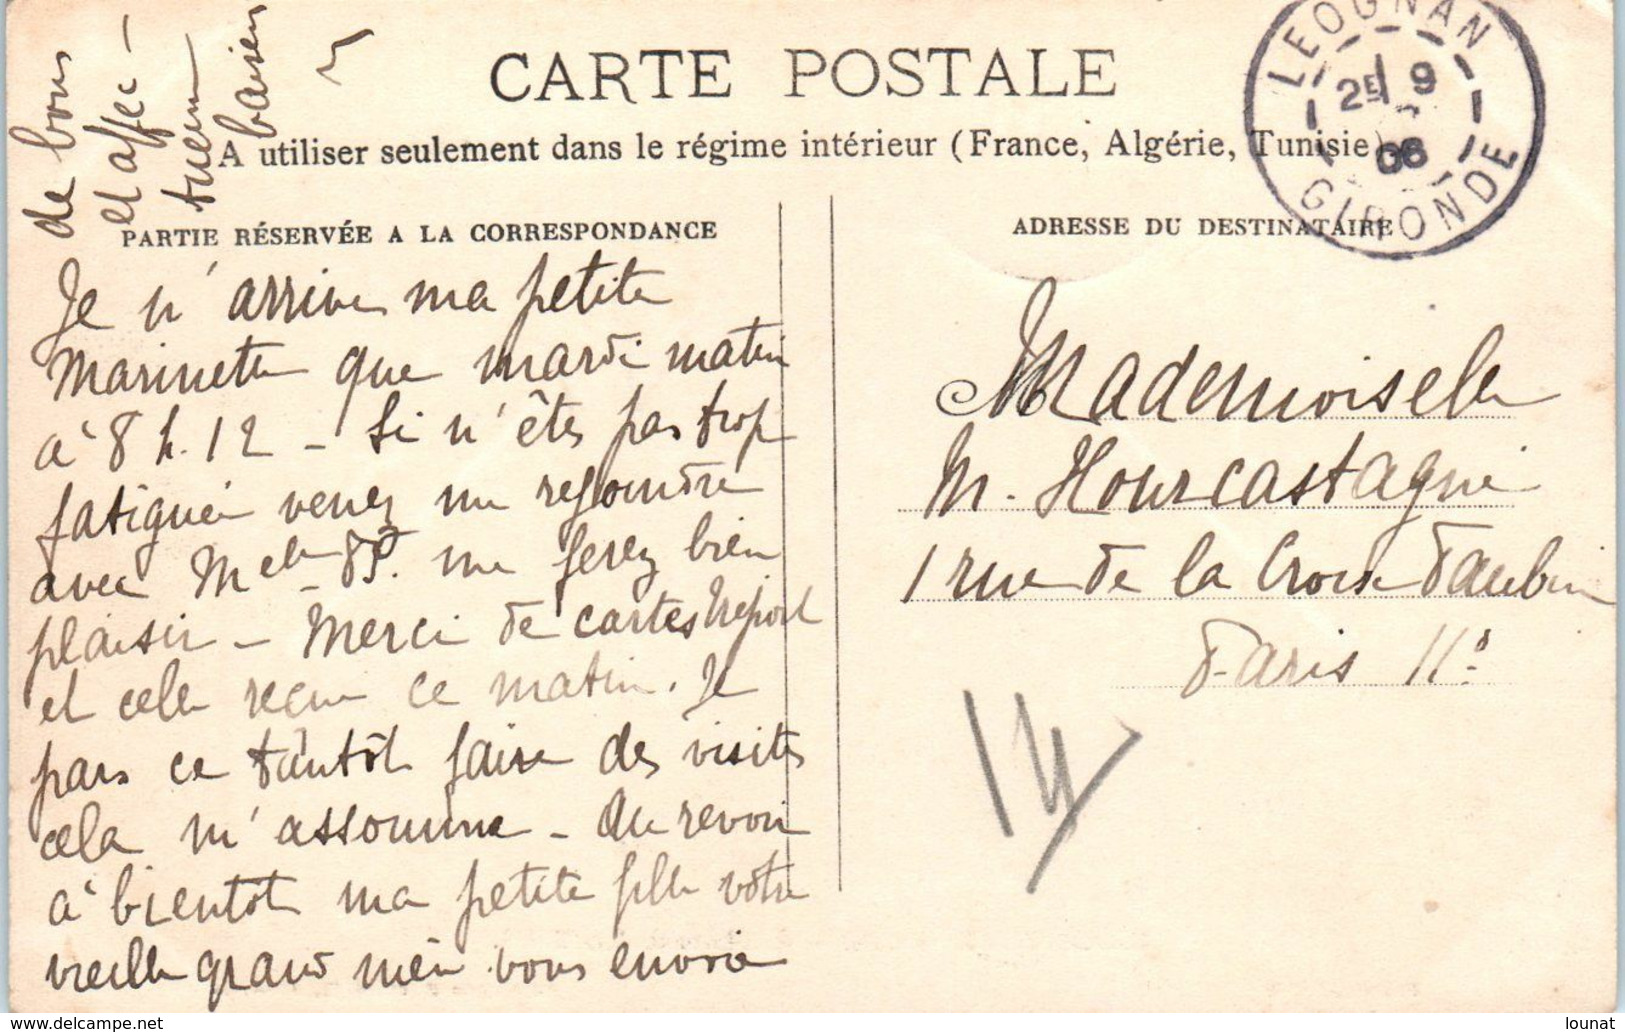 CARTE POSTALE
A utiliser seulement dans le régime intérieur (France, Algérie, Tunisie)
LEOGNAN
2E 9
06
GIRONDE
PARTIE RÉSERVÉE A LA CORRESPONDANCE
ADRESSE DU DESTINATAIRE
Je n'arrive ma petite
Marinette que mardi matin
à 8 h. 12 - Si n'êtes pas trop
fatiguée venez me rejoindre
avec Melle me ferez bien
plaisir - Merci de cartes Tréport
et celle reçue ce matin. Je
pars ce tantôt faire des visites
cela m'assomme - Au revoir
à bientôt ma petite fille votre
vieille grand mère vous envoie
de bons
et affec-
tueux
baisers
Mademoiselle
M. Hourcastagné
1 rue de la Croix Faubin
Paris 11e
14
lounat